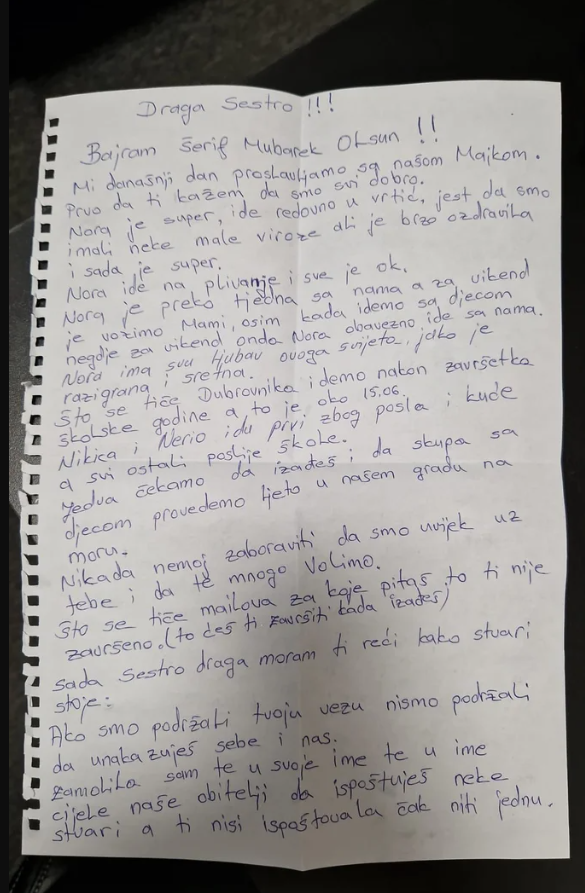 Draga Sestro!!!
Bajram Šerif Mubarek Olsun!!
Mi današnji dan proslavljamo sa našom Majkom.
Prvo da ti kažem da smo svi dobro.
Nora je super, ide redovno u vrtić, jest da smo
imali neke male viroze ali je brzo ozdravila
i sada je super.
Nora ide na plivanje i sve je ok.
Nora je preko tjedna sa nama a za vikend
je vozimo Mami, osim kada idemo sa djecom
negdje za vikend onda Nora obavezno ide sa nama.
Nora ima svu ljubav ovoga svijeta, jako je
razigrana i sretna.
Što se tiče Dubrovnika idemo nakon završetka
školske godine a to je oko 15.06.
Nikica i Nerio idu prvi zbog posla i kuće
a svi ostali poslije škole.
Jedva čekamo da izađeš i da skupa sa
djecom provedemo ljeto u našem gradu na
moru.
Nikada nemoj zaboraviti da smo uvijek uz
tebe i da te mnogo Volimo.
Što se tiče mailova za koje pitaš to ti nije
završeno. (to ćeš ti završiti kada izađeš)
Sada Sestro draga moram ti reći kako stvari
stoje:
Ako smo podržali tvoju vezu nismo podržali
da unakazuješ sebe i nas.
Zamolila sam te u svoje ime te u ime
cijele naše obitelji da ispoštuješ neke
stvari a ti nisi ispoštovala čak niti jednu.